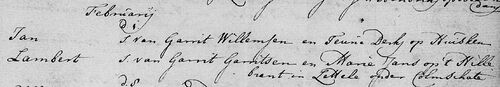 Februarij
d 1
Jan S. van Garrit Willemsen en Teune Derks op Huisken
Lambert S. van Garrit Garritsen en Marie Jans op 't Hille
brant in Lettele onder Colmschate
d 8